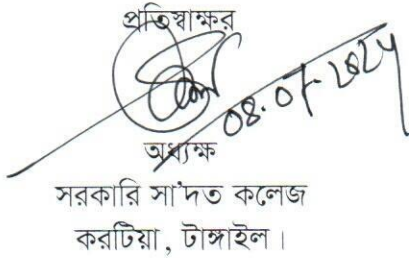 প্রতিস্বাক্ষর
অধ্যক্ষ
সরকারি সা'দত কলেজ
করটিয়া, টাঙ্গাইল।